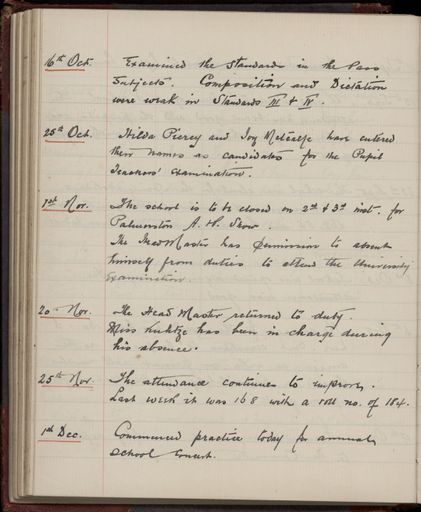 16th Oct. Examined the Standards in the Pass
Subjects. Composition and Dictation
were weak in Standards III & IV.
25th Oct. Hilda Piercy and Ivy Metcalfe have entered
their names as candidates for the Pupil
Teachers' examination.
1st Nov. The school is to be closed on 2nd & 3rd inst. for
Palmerston A. H. Show.
The Head Master has permission to absent
himself from duties to attend the University
Examination.
20th Nov. The Head Master returned to duty.
Miss has been in charge during
his absence.
25th Nov. The attendance continues to improve.
Last week it was 168 with a roll no. of 184.
1st Dec. Commenced practice today for annual
school concert.